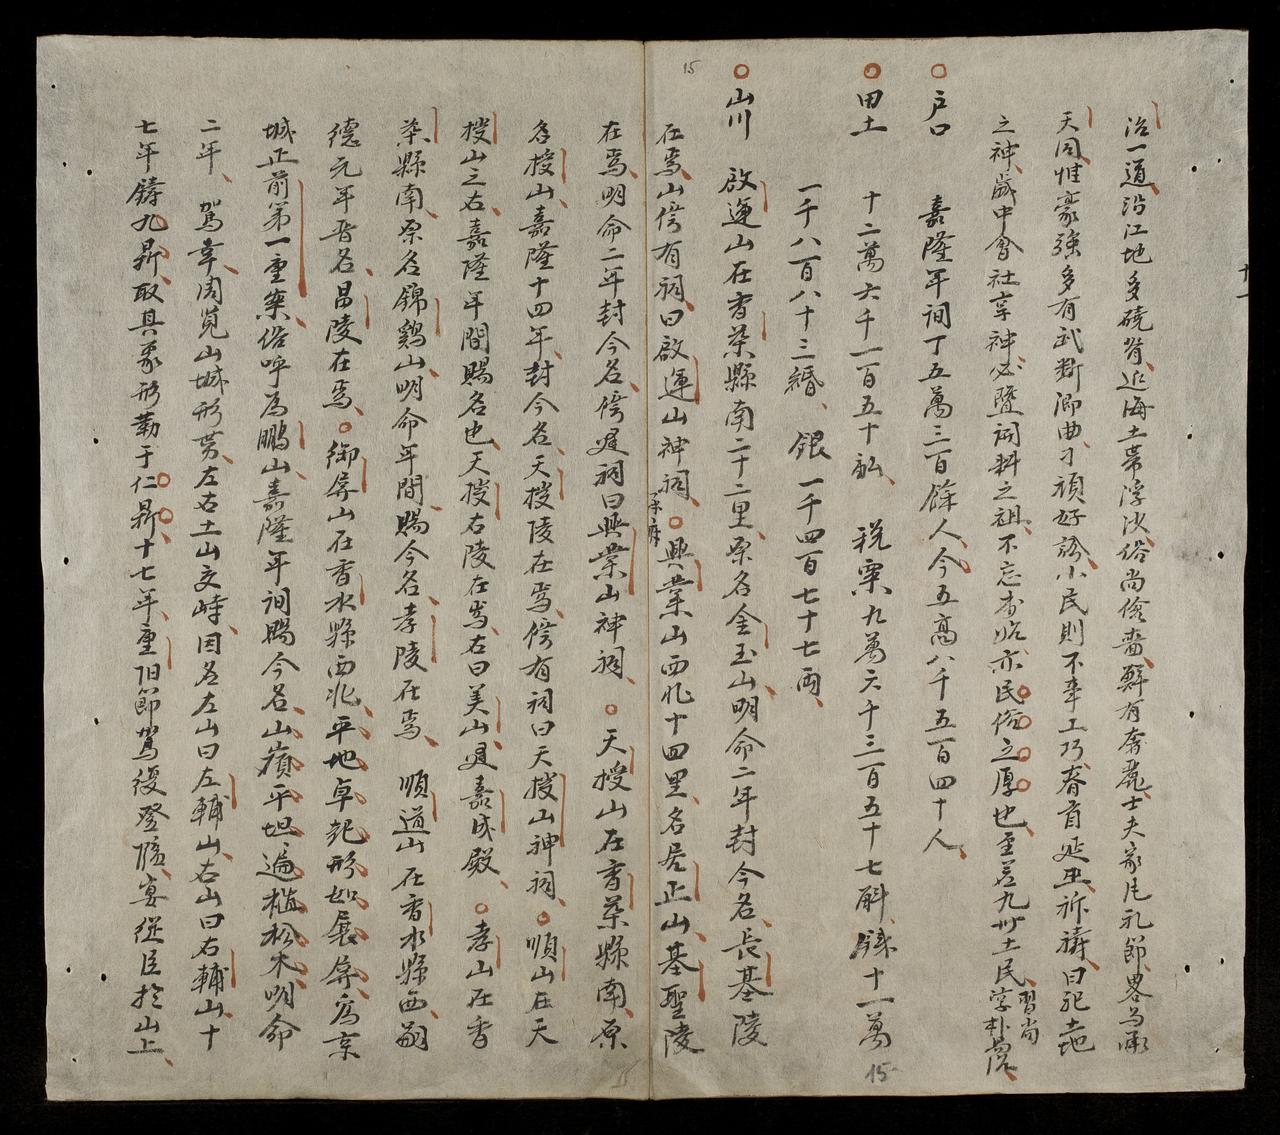 治一道沿江地多磽脊近海土帶浮沙俗尚儉嗇鮮有奢麗士夫家凡礼節畧与承
天同惟豪強多有武断鄉曲刁頑好訟小民則不事工巧春首延巫祈禱曰祀土地
之神歲中會社享神必暨開耕之祖不忘本始亦民俗之厚也至若九州土民習尚淳朴
户口 嘉隆年间丁五萬三百餘人今五萬八千五百四十人
田土 十二萬六千一百五十畝 税粟九萬六千三百五十七斛錢十一萬
一千八百八十三緡 銀一千四百七十七両
山川 啟運山在香茶縣南二十二里原名金玉山明命二年封今名長基陵
在焉山傍有祠曰啟運山神祠 興業山西北十四里名居正山基聖陵
在焉明命二年封今名傍建祠曰興業山神祠 天授山在香茶縣南原
名授山嘉隆十四年封今名天授陵在焉傍有祠曰天授山神祠 順山在天
授山之右嘉隆年間賜名也天授右陵在焉右曰美山建嘉成殿 孝山在香
茶縣南原名錦鷄山明命年間賜今名孝陵在焉 順道山在香水縣西嗣
德元年晋名昌陵在焉 御屏山在香水縣西北平地卓起形如展屏為京
城正前第一重案俗呼為鵬山嘉隆年间賜今名山巔平坦遍植松木明命
二年 駕幸周覧山城形势左右土山交峙因名左山曰左輔山右山曰右輔山十
七年鑄九鼎取其象形勒于仁鼎十七年重阳節駕復登陟宴從臣於山上
15
15